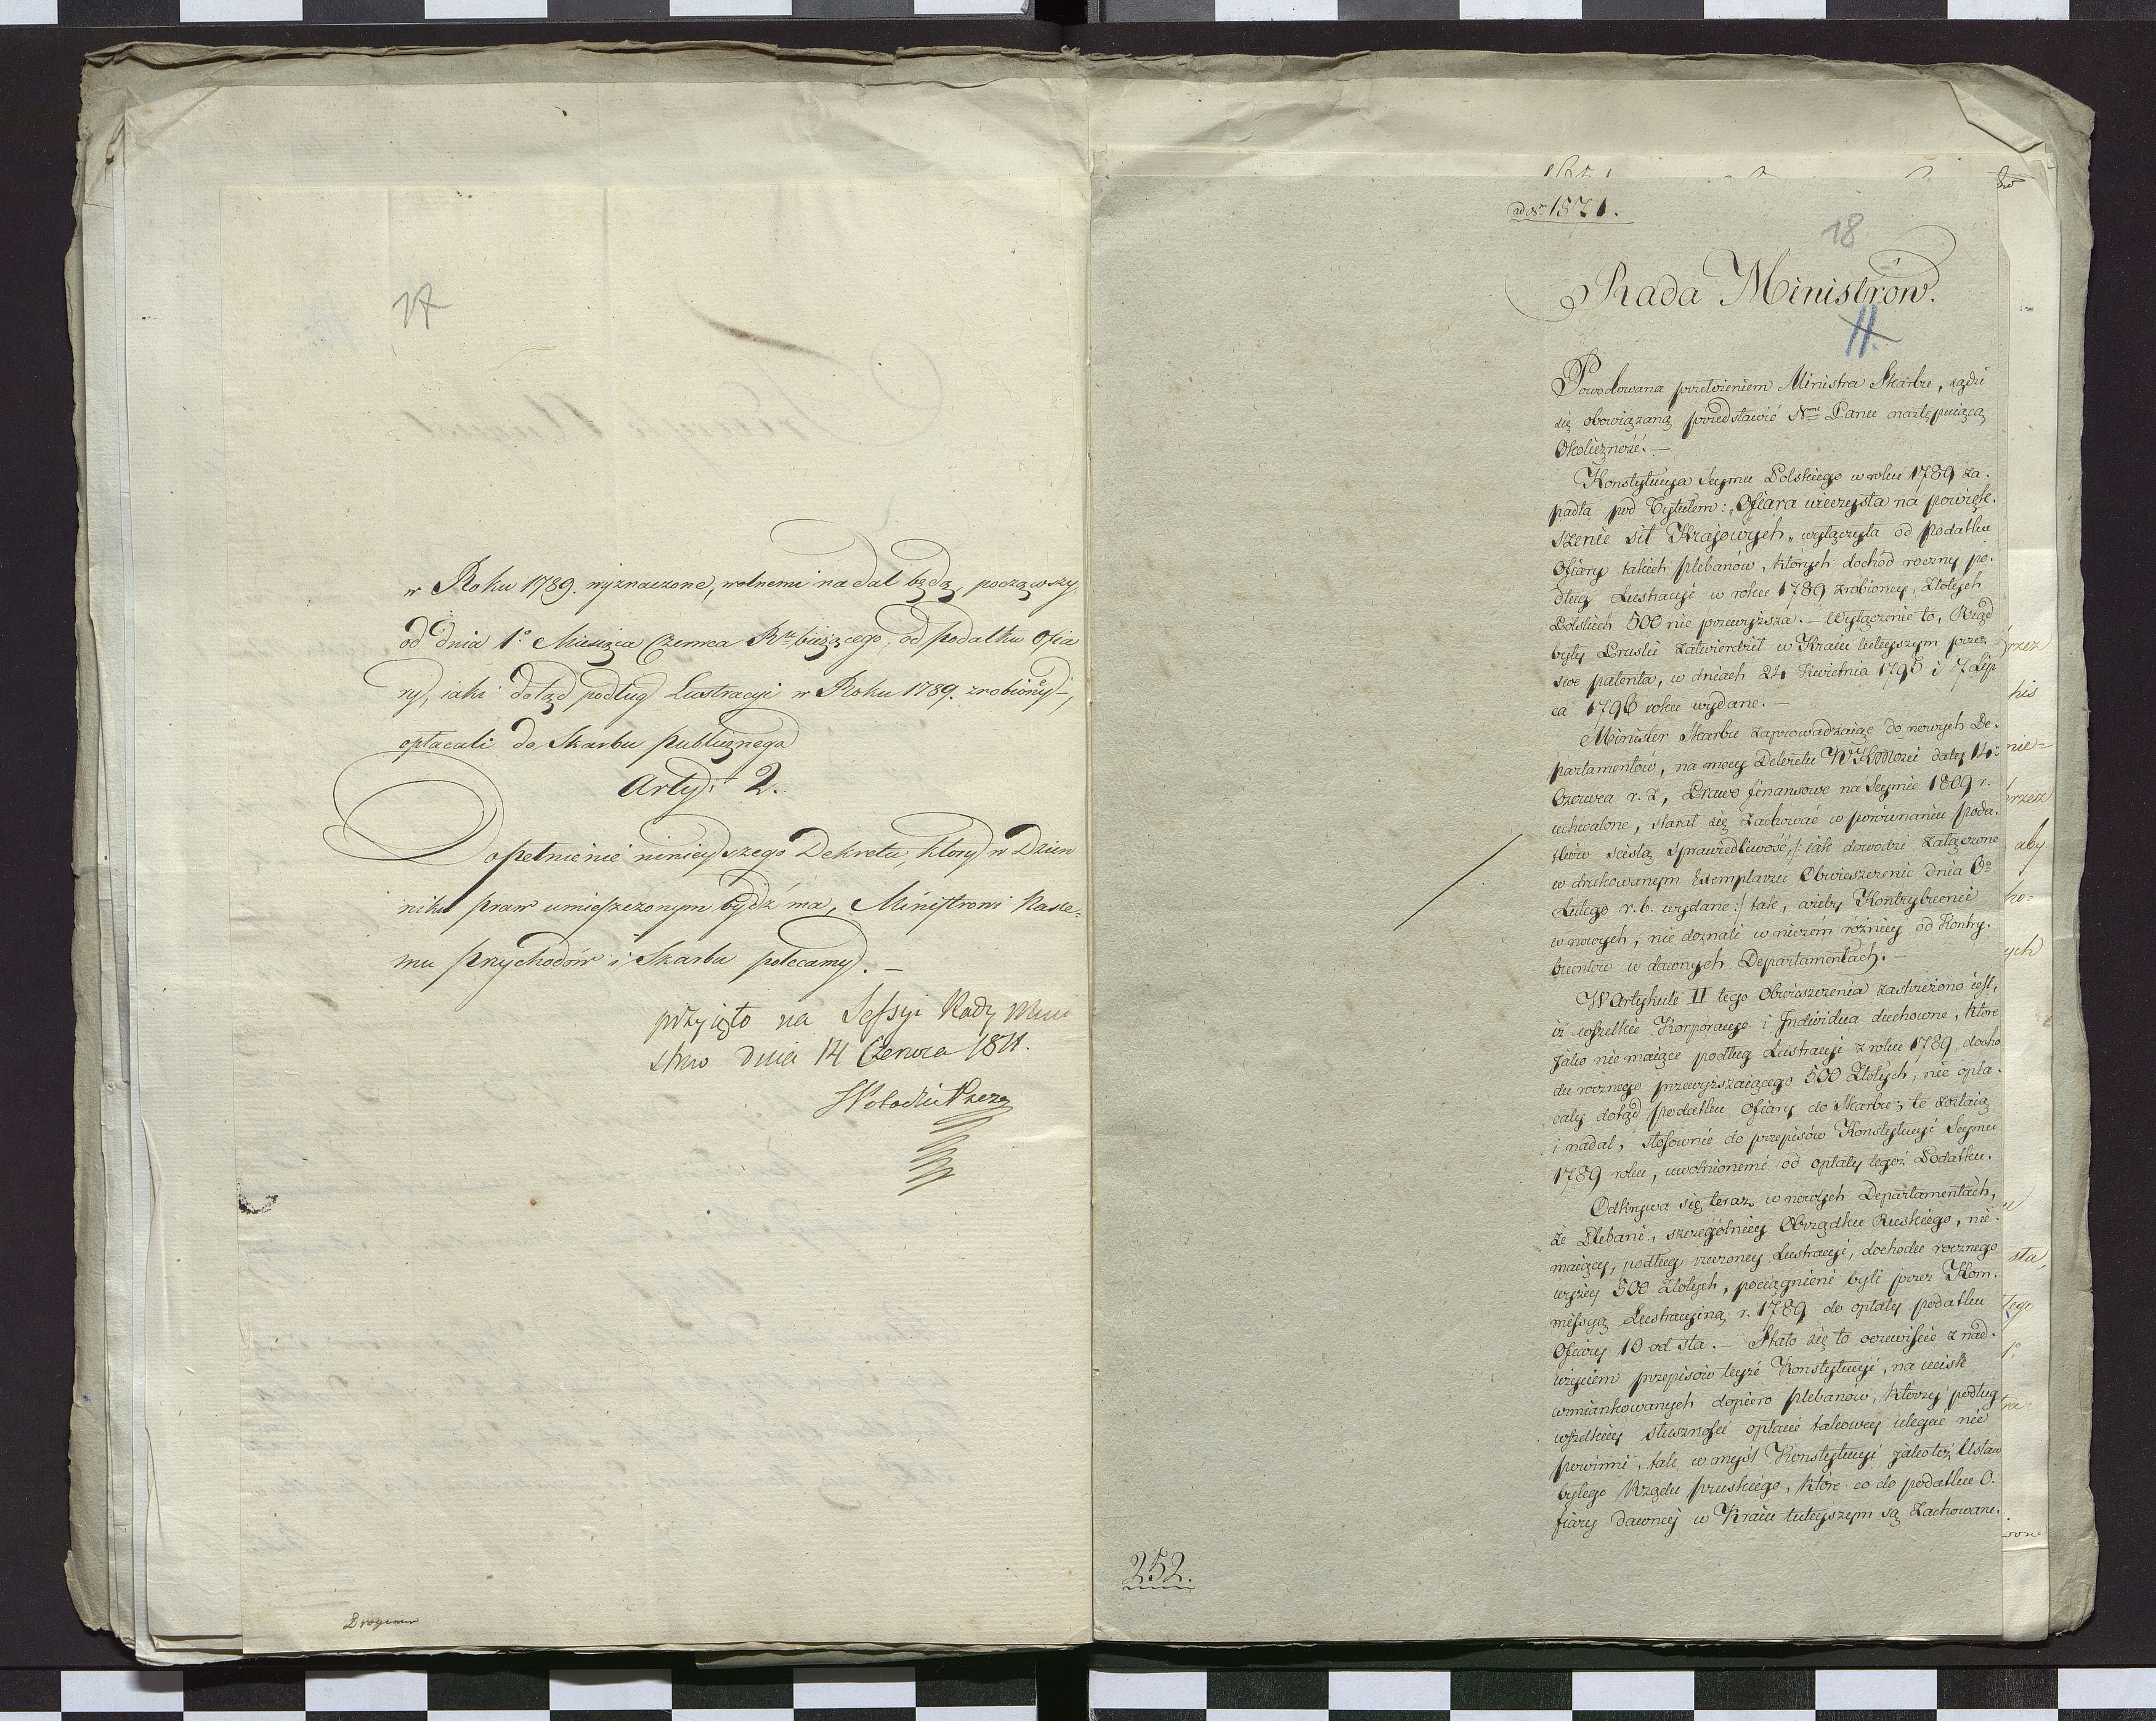 17
w Roku 1789. wyznaczone, wolnemi nadal będą, począwszy
od dnia 1º Miesiąca Czerwca Rku bieżącego, od podatku Ofia
ry, iaki dotąd podług Lustracyi w Roku 1789. zrobioney,
opłacali do Skarbu publicznego
Arty: 2.
Dopełnienie ninieyszego Dekretu, który w Dzien
niku praw umieszczonym bydź ma, Ministrowi Nasze-
mu Przychodów i Skarbu polecamy. —
przyięto na Sessyi Rady Mini
strow dnia 14 Czerwca 1811.
252.
ad Nm 1571.
18
Rada Ministrów.
II.
Powodowana przełożeniem Ministra Skarbu, sądzi
się obowiązaną przedstawić Nmu Panu następuiącą
Okoliczność. —
Konstytucya Seymu Polskiego w roku 1789 za-
padła pod Tytułem: „Ofiara wieczysta na powięk-
szenie sił Krajowych„ wyłączyła od podatku
Ofiary takich plebanów, których dochód roczny po-
dług Lustracyi w roku 1789 zrobioney, Złotych
Polskich 500 nie przewyższa. — Wyłączenie to, Rząd
były Pruski zatwierdził w Kraiu tuteyszym przez
swe patenta, w dniach 24 Kwietnia 1795 i 7 Lip
ca 1796 roku wydane. —
Minister Skarbu zaprowadzaiąc do nowych De-
partamentów, na mocy Dekretu WKMości daty 14:
Czerwca r. z, Prawo finansowe na Seymie 1809 r.
uchwalone, starał się zachować w porównaniu poda-
tków scisłą sprawiedliwość, /: iak dowodzi załączone
w drukowanym Exemplarzu Obwieszczenie dnia 6º
Lutego r. b. wydane :/ tak, ażeby Kontrybuenci
w nowych, nie doznali w niczém różnicy od Kontry-
buentow w dawnych Departamentach. —
W Artykule II tego Obwieszczenia zastrzeżono iest,
iż wszelkie Korporacye i Indiwidua duchowne, ktore
jako nie maiące podług Lustracyi z roku 1789, docho
du rocznego przewyższaiącego 500 Złotych, nie opła-
cały dotąd podatku Ofiary do Skarbu; te zostaią
i nadal, stosownie do przepisów Konstytucyi Seymu
1789 roku, uwolnionemi od opłaty tegoż Podatku.
Odkrywa się teraz w nowych Departamentach,
że Plebani, szczególniey Obrządku Ruskiego, nie-
maiący, podług rzeczoney Lustracyi, dochodu rocznego
wyżey 500 Złotych, pociągnieni byli przez Kom-
missyą Lustracyiną r. 1789 do opłaty podatku
Ofiary 10 od sta. — Stało się to oczewiście z nad-
użyciem przepisów teyże Konstytucyi, na ucisk
wzmiankowanych dopiero plebanów, którzy podług
wszelkiey słuszności opłacie takowey ulegać nie
powinni, tak w myśl Konstytucyi jakoteż Ustaw
byłego Rządu pruskiego, które co do podatku O-
fiary dawniey w Kraiu tuteyszym są zachowane.
przez
nie=
przez
aby
ych
sta,
tego
1º